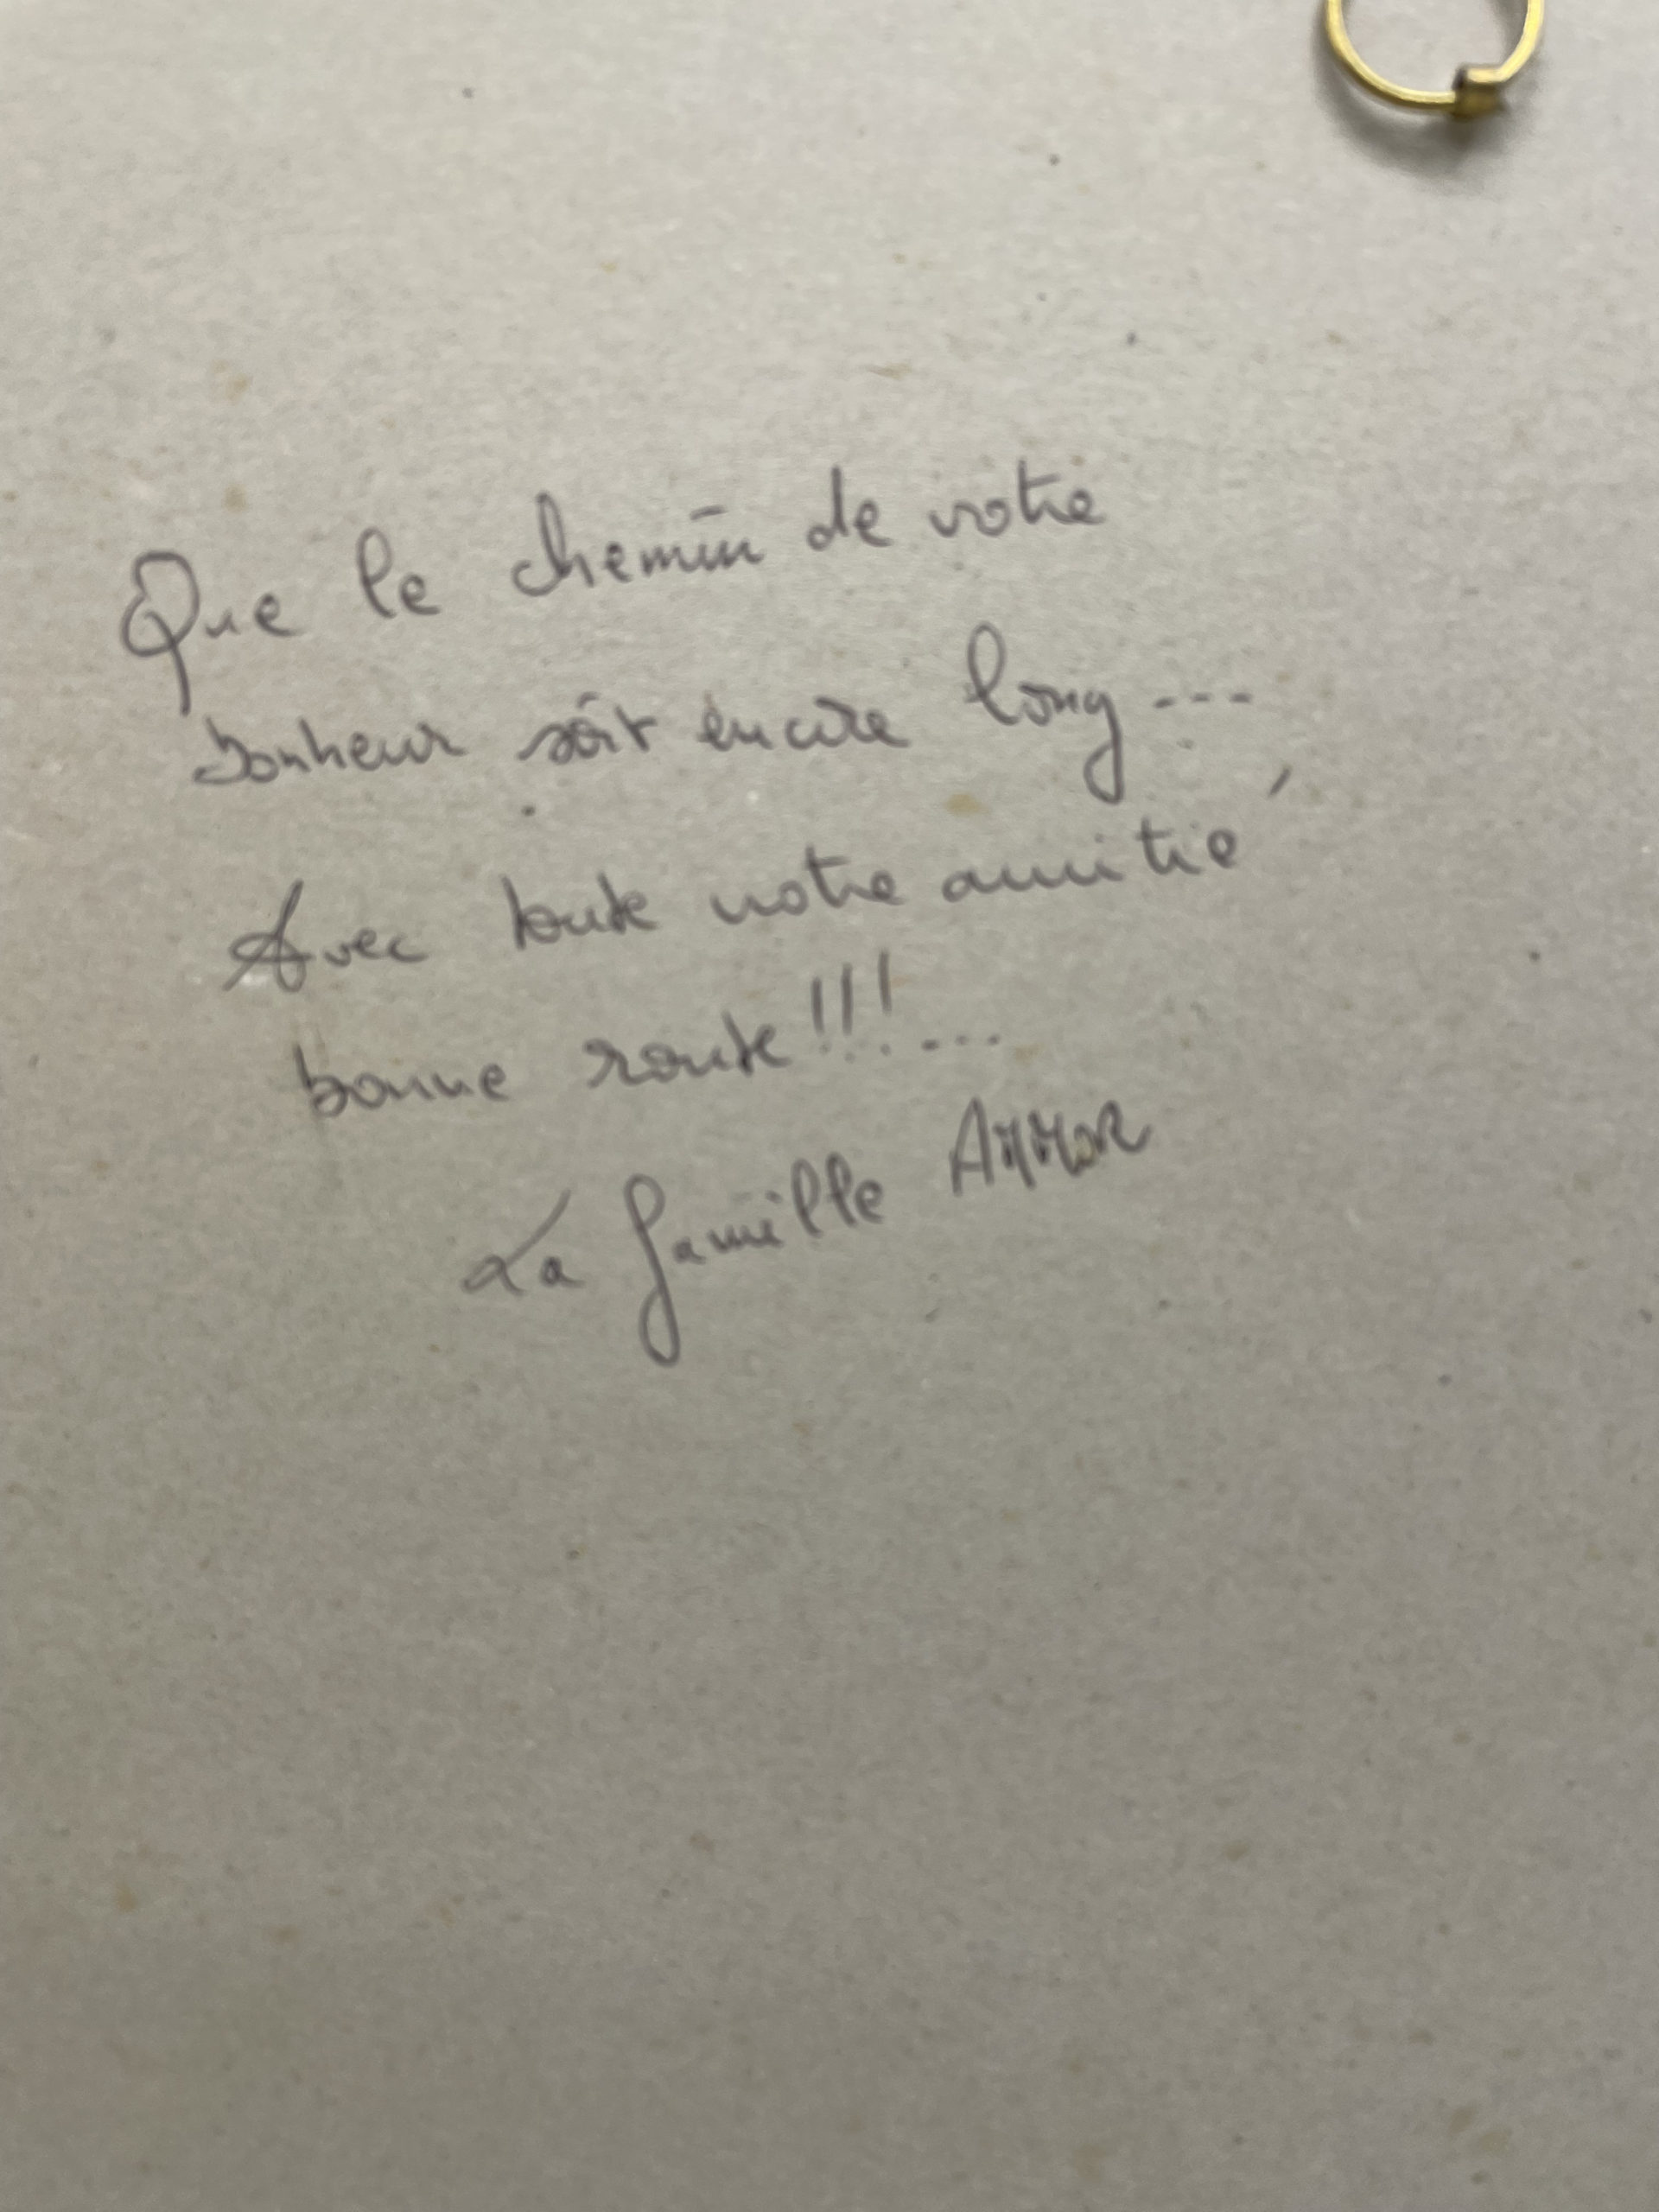 Que le chemin de votre
bonheur soit encore long ---
Avec toute notre amitié
bonne route !!! ...
La famille